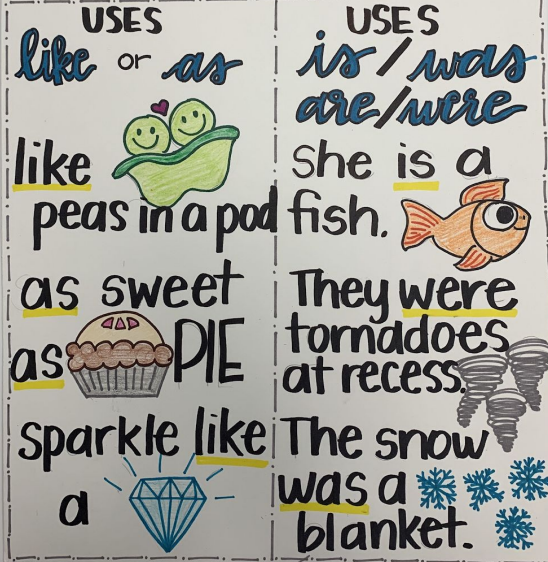 USES
like or as
like
peas in a pod
as sweet
as PIE
sparkle like
a
USES
is / was
are/were
she is a
fish.
They were
tornadoes
at recess.
The snow
was a
blanket.